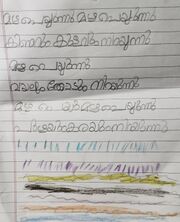 മഴ പെയ്യുന്നു മഴ പെയ്യുന്നു
കിണറും കുളവും നിറയുന്നു
മഴ പെയ്യുന്നു
വയലും തോടും നിറയുന്നു
മഴ പെയ്യുന്നു മഴ പെയ്യുന്നു